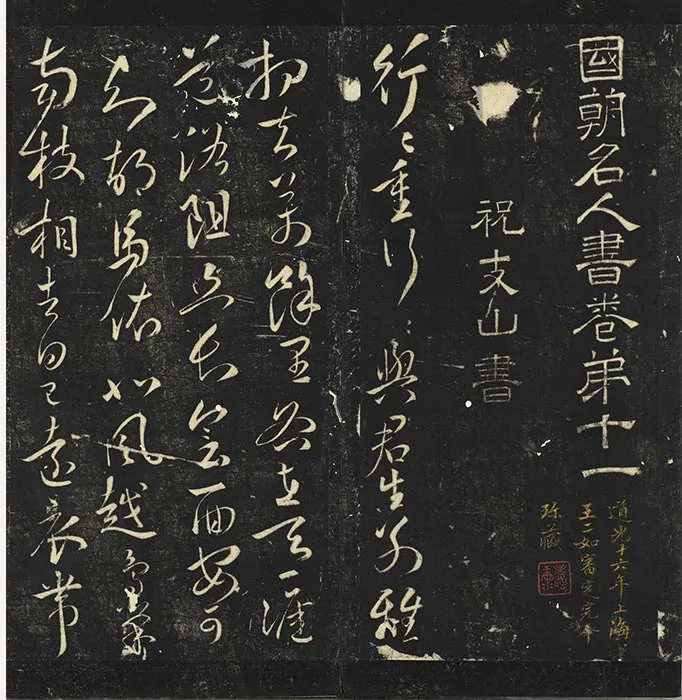 國朝名人書卷弟十一
祝支山書
道光十六年上海
審定
珍藏
行〻重行〻與君生別離
相去萬餘里各在天一涯
道路阻且長會面安可
知胡馬依北風越鳥巢
南枝相去日已遠衣帶